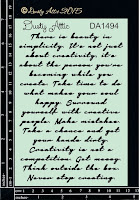 ©Dusty Attic 2015
Dusty Attic DA1494
There is beauty in
simplicity. It's not just
about creativity, its
about the person you're
becoming while you
create. Take time to do
what makes your soul
happy. Surround
yourself with creative
people. Make mistakes.
Take a chance and get
your hands dirty.
Creativity is not a
competition. Get messy.
Think outside the box.
Never stop creating.